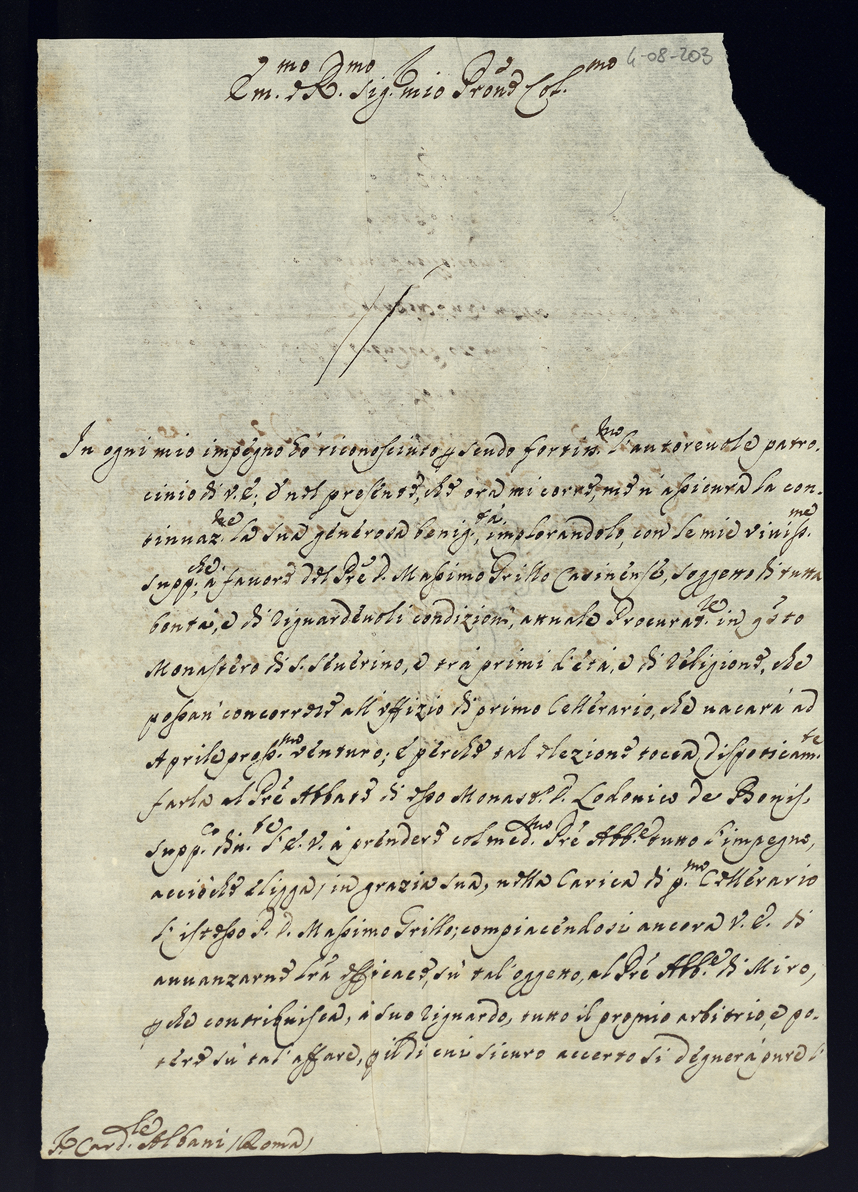 4-08-203
Em.mo e R.mo Sig. mio Prōne Col.mo
In ogni mio impegno hò riconosciuto p scudo fortiss.mo l'autoreuole patro-
cinio di V.E.; e nel presente, che ora mi corre, me n'assicura la con-
tinuaz.ne la sua generosa benig.tà, implorandolo, con le mie viuiss.me
supp.che, à fauore del Prē D. Massimo Grillo Casinense, soggetto di tutta
bontà, e di riguardeuoli condizioni, attuale Procurat.re in q̄sto
Monastero di S. Seuerino, e trà primi d'età, e di religione, che
possan' concorrere all'offizio di primo Cellerario, che uacarà ad
Aprile pross.mo venturo; e perche tal elezione tocca disposticam.te
farla al Prē Abbate di esso Monast.o D. Lodouico de Bonis,
supp.co diu.te l'E.V. à prendere col med.mo Prē Abb.e tutto l'impegno,
acciòche eligga, in grazia sua, nella Carica di p.mo Cellerario
l'istesso P. D. Massimo Grillo; compiacendosi ancora V.E. di
auuanzarne lrā efficace, sù tal'oggetto, al Prē Abb.e di Miro,
p che contribuisca, à suo riguardo, tutto il proprio arbitrio, e po-
tere sù tal'affare, p il di cui sicuro accerto si degnerà pure l'
S.r Card.le Albani (Roma)